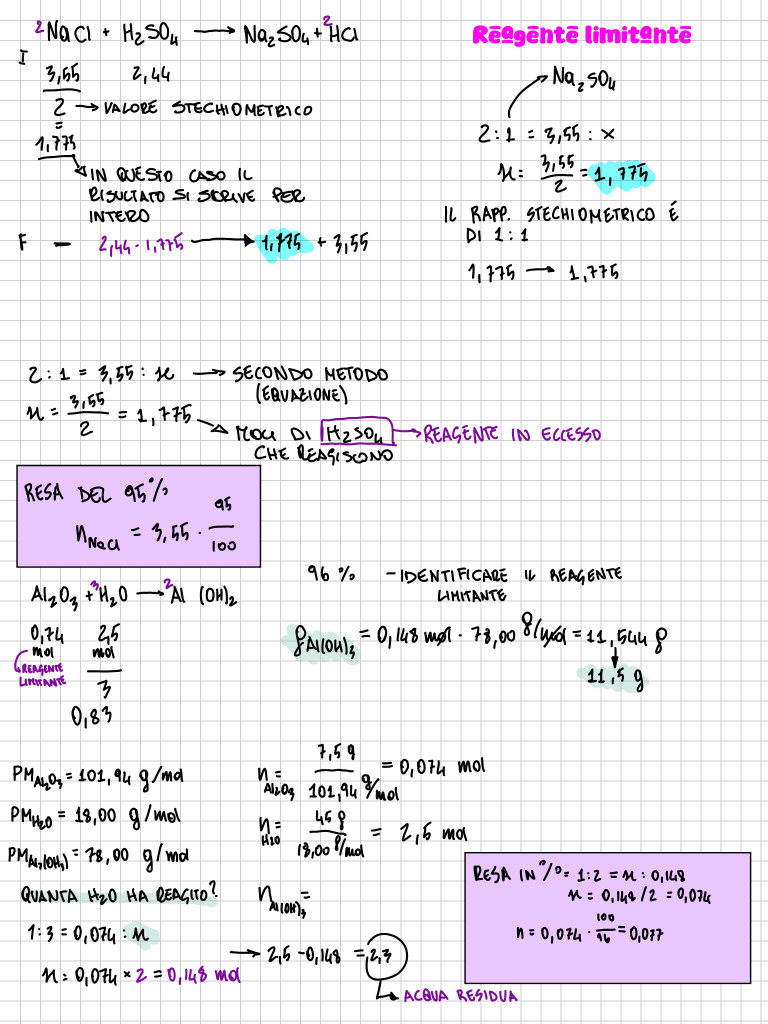 2NaCl + H2SO4 → Na2SO4 + 2HCl
Reagente limitante
I
3,55 2,44
2 → VALORE STECHIOMETRICO
=
1,775
IN QUESTO CASO IL
RISULTATO SI SCRIVE PER
INTERO
F - 2,44 - 1,775 → 1,775 + 3,55
Na2SO4
2 : 1 = 3,55 : x
x = 3,55/2 = 1,775
IL RAPP. STECHIOMETRICO É
DI 1:1
1,775 → 1,775
2 : 1 = 3,55 : x → SECONDO METODO
(EQUAZIONE)
x = 3,55/2 = 1,775
MOLI DI H2SO4 → REAGENTE IN ECCESSO
CHE REAGISCONO
RESA DEL 95%
nNaCl = 3,55 · 95/100
Al2O3 + 3H2O → 2Al (OH)2
0,74 2,5
mol mol
REAGENTE
LIMITANTE
3
0,83
96 % - IDENTIFICARE IL REAGENTE
LIMITANTE
gAl(OH)3 = 0,148 mol · 78,00 g/mol = 11,544 g
11,5 g
PMAl2O3 = 101,94 g/mol
PMH2O = 18,00 g/mol
PMAl2(OH3) = 78,00 g/mol
nAl2O3 = 7,5 g / 101,94 g/mol = 0,074 mol
nH2O = 45 g / 18,00 g/mol = 2,5 mol
nAl(OH)3 =
QUANTA H2O HA REAGITO?
1:3 = 0,074 : x
x = 0,074 × 2 = 0,148 mol
→ 2,5 - 0,148 = 2,3
ACQUA RESIDUA
RESA IN % = 1:2 = x : 0,148
x = 0,148 / 2 = 0,074
n = 0,074 · 100/96 = 0,077